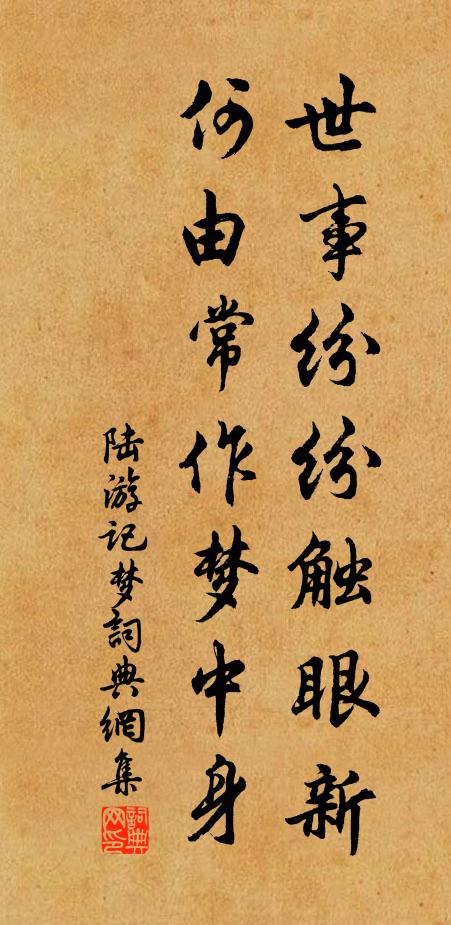 世事纷纷触眼新
何由常作梦中身
陆游记梦詞典網集
詞典网印